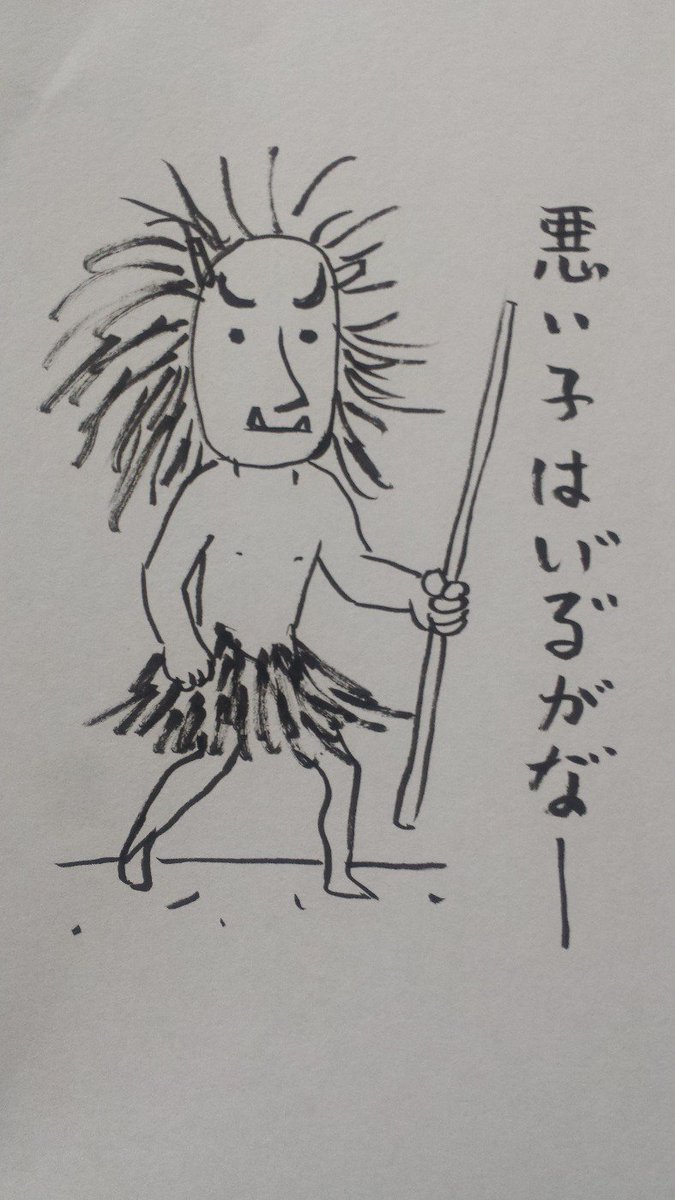 悪い子はい゛る゛がなー